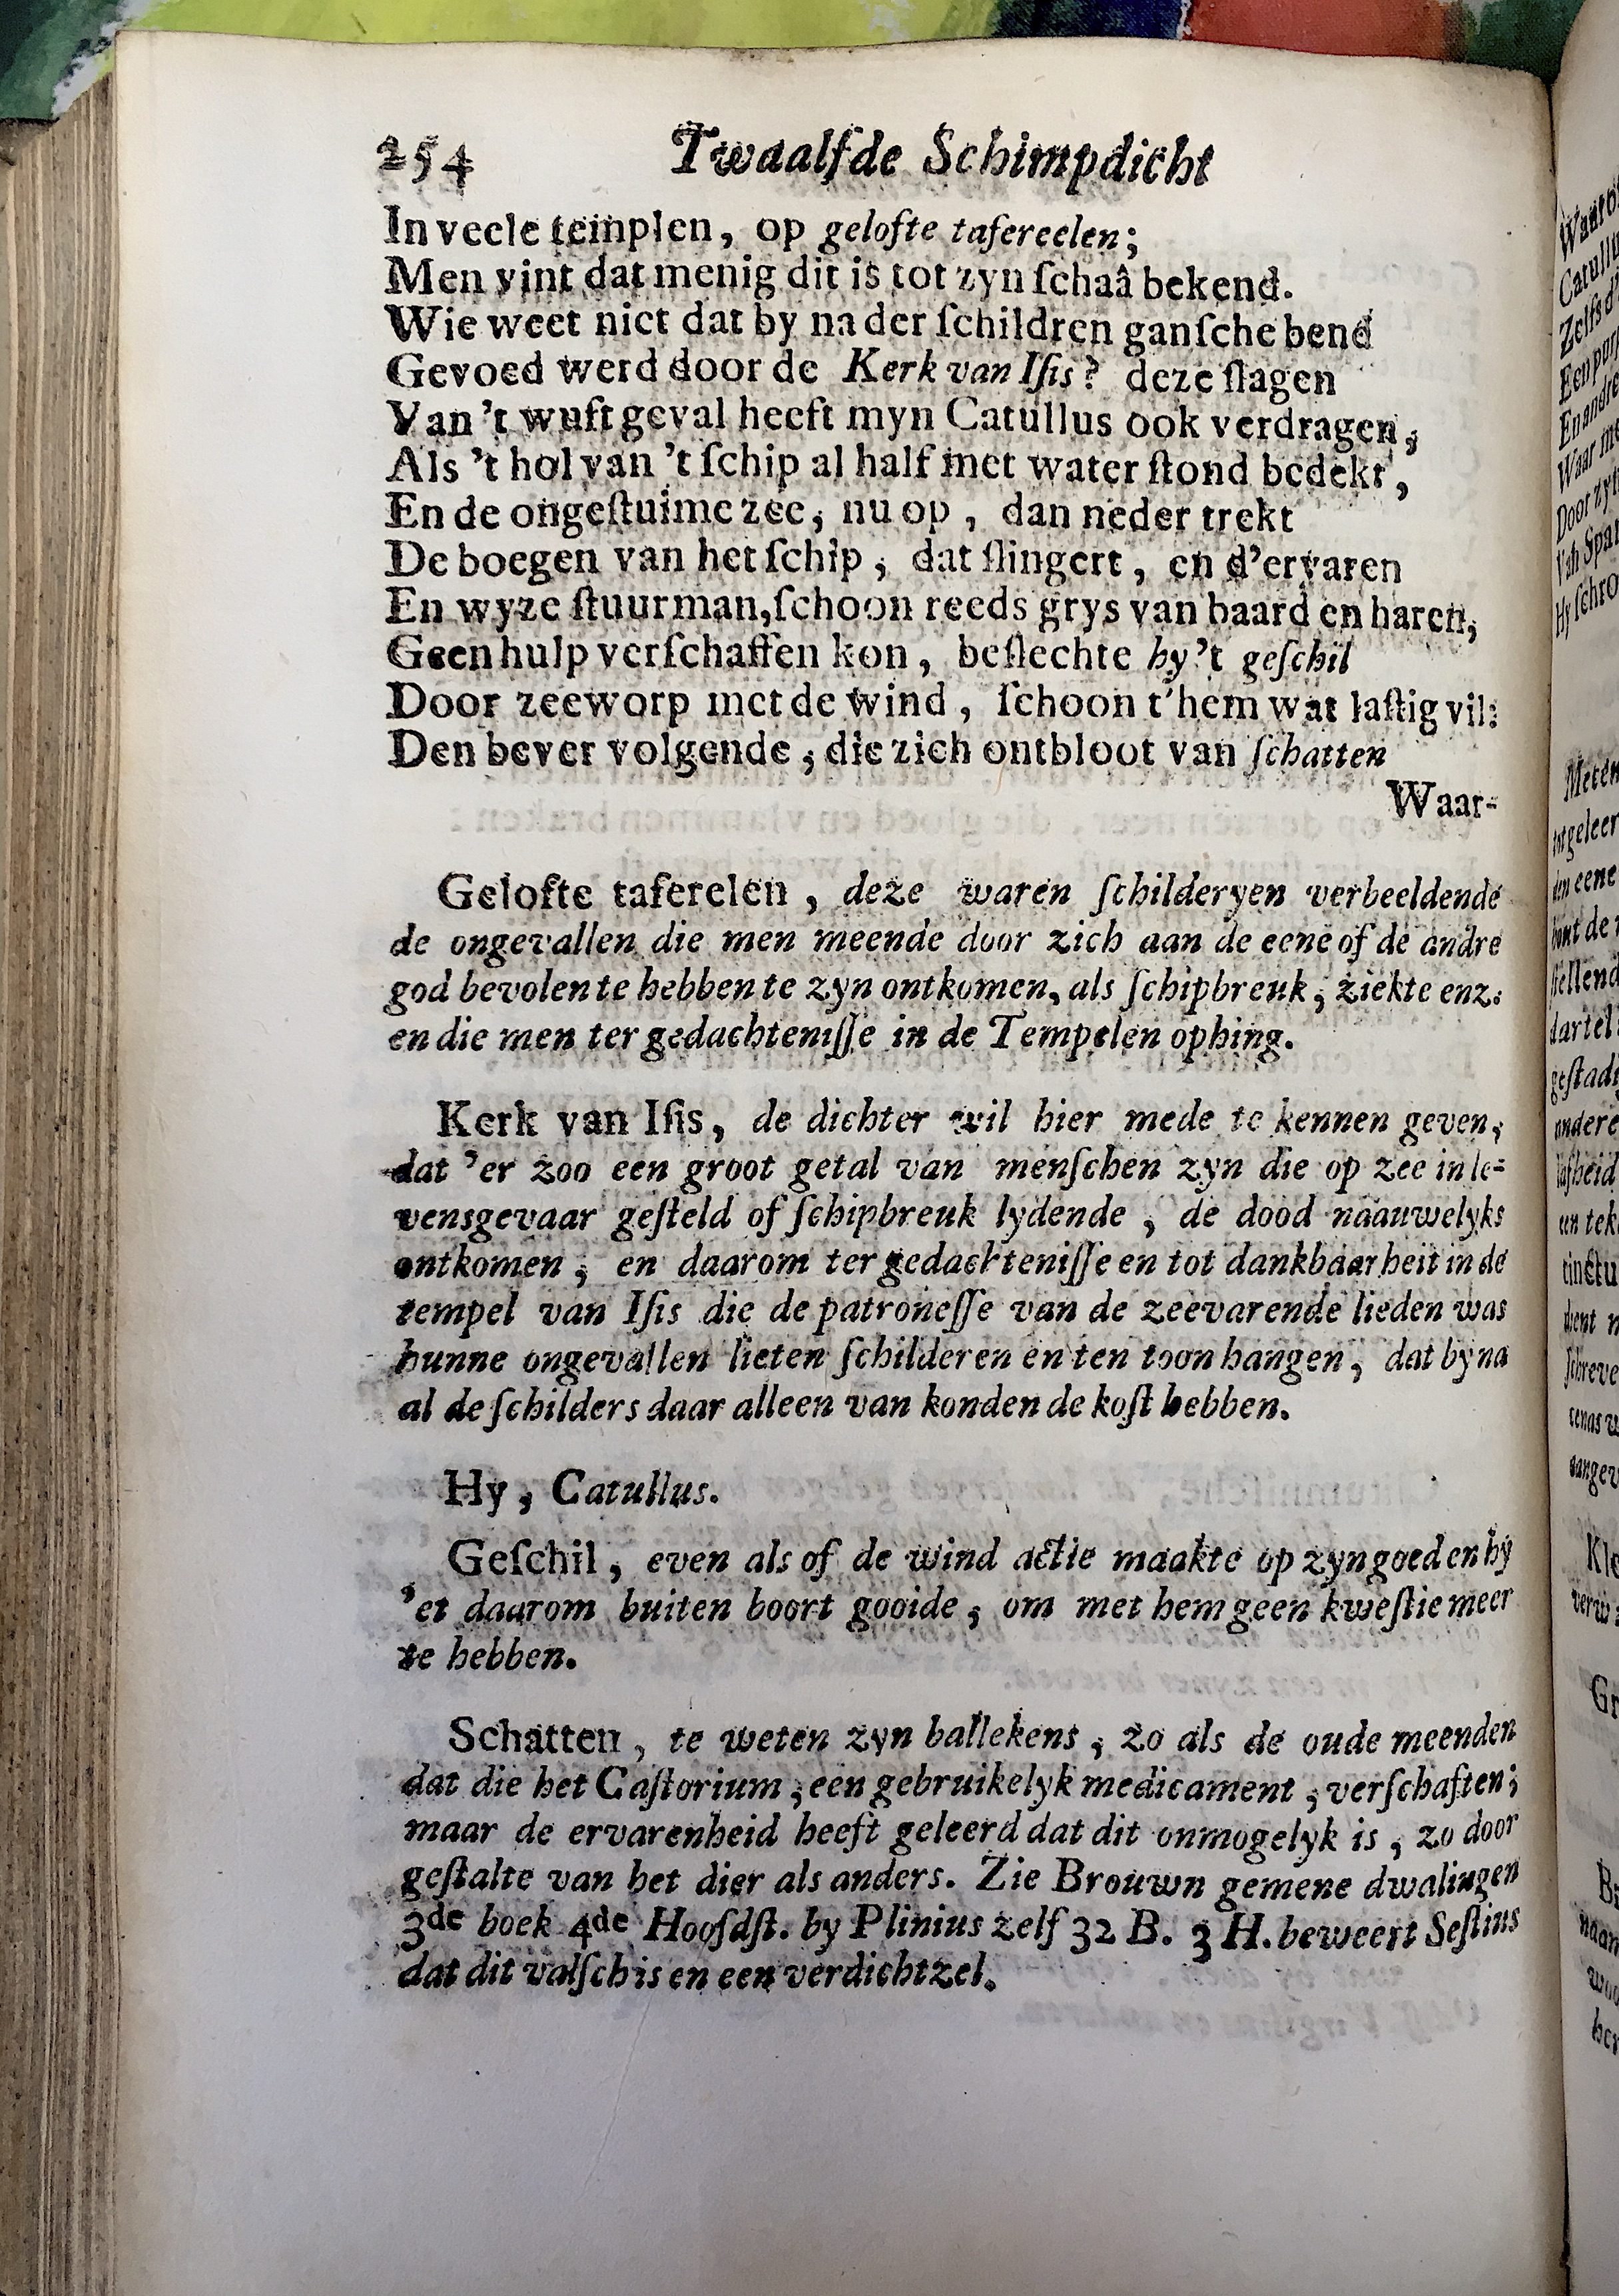 254 Twaalfde Schimpdicht
In veele templen, op gelofte tafereelen;
Men vint dat menig dit is tot zyn ſchaâ bekend.
Wie weet niet dat by na der ſchildren ganſche bend
Gevoed werd door de Kerk van Iſis? deze ſlagen
Van 't wuft geval heeft myn Catullus ook verdragen,
Als 't hol van 't ſchip al half met water ſtond bedekt,
En de ongeſtuime zee, nu op, dan neder trekt
De boegen van het ſchip, dat ſlingert, en d'ervaren
En wyze ſtuurman, ſchoon reeds grys van baard en haren,
Geen hulp verſchaffen kon, beſlechte hy 't geſchil
Door zeeworp met de wind, ſchoon t'hem wat laſtig vil:
Den bever volgende, die zich ontbloot van ſchatten
Waar-
Gelofte taferelen, deze waren ſchilderyen verbeeldende
de ongevallen die men meende door zich aan de eene of de andre
god bevolen te hebben te zyn ontkomen, als ſchipbreuk, ziekte enz.
en die men ter gedachteniſſe in de Tempelen ophing.
Kerk van Iſis, de dichter wil hier mede te kennen geven,
dat 'er zoo een groot getal van menſchen zyn die op zee in le-
vensgevaar geſteld of ſchipbreuk lydende, de dood naauwelyks
ontkomen, en daarom ter gedachteniſſe en tot dankbaarheit in de
tempel van Iſis die de patroneſſe van de zeevarende lieden was
hunne ongevallen lieten ſchilderen en ten toon hangen, dat byna
al de ſchilders daar alleen van konden de koſt hebben.
Hy, Catullus.
Geſchil, even als of de wind actie maakte op zyn goed en hy
'et daarom buiten boort gooide, om met hem geen kweſtie meer
te hebben.
Schatten, te weten zyn ballekens, zo als de oude meenden
dat die het Caſtorium, een gebruikelyk medicament, verſchaften;
maar de ervarenheid heeft geleerd dat dit onmogelyk is, zo door
geſtalte van het dier als anders. Zie Brouwn gemene dwalingen
3de boek 4de Hoofdſt. by Plinius zelf 32 B. 3 H. beweert Seſtius
dat dit valſch is en een verdichtzel.